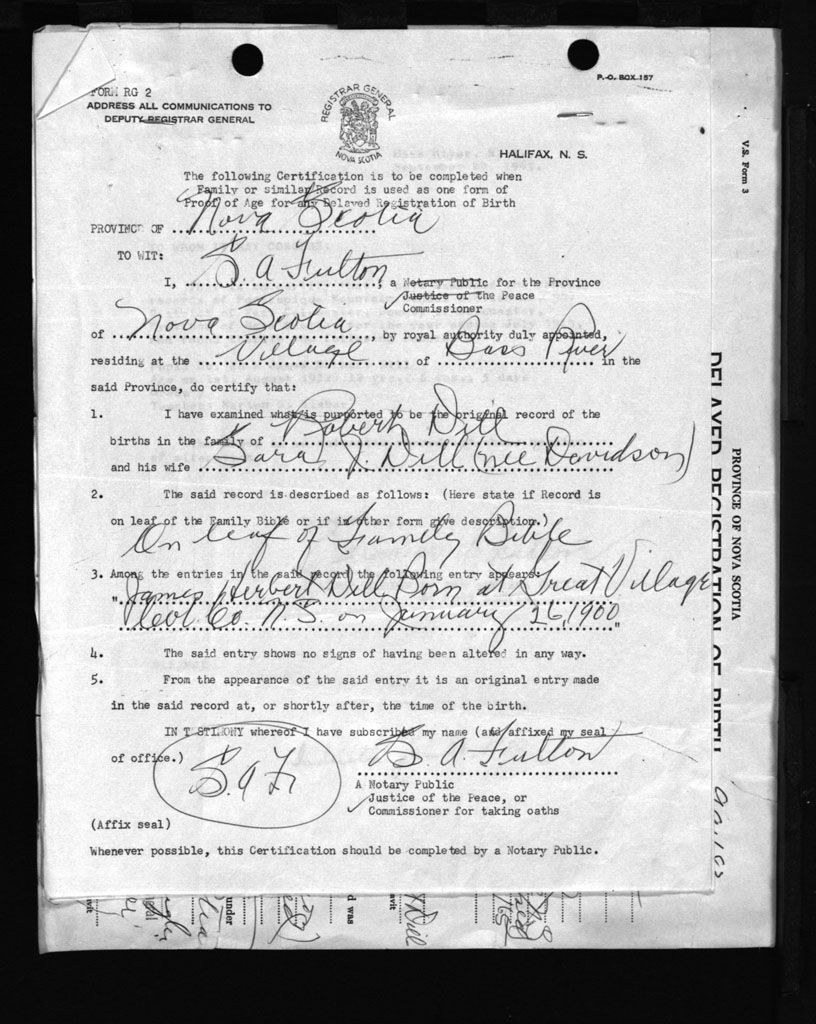 P.O. BOX 157
FORM RG 2
ADDRESS ALL COMMUNICATIONS TO
DEPUTY REGISTRAR GENERAL
REGISTRAR GENERAL
NOVA SCOTIA
HALIFAX, N. S.
The following Certification is to be completed when
Family or similar Record is used as one form of
Proof of Age for any Delayed Registration of Birth
PROVINCE OF Nova Scotia
TO WIT:
I, B. A. Fulton, a Notary Public for the Province
Justice of the Peace
Commissioner
of Nova Scotia, by royal authority duly appointed,
residing at the Village of Bass River in the
said Province, do certify that:
1. I have examined what is purported to be the original record of the
births in the family of Robert Dill
and his wife Sara J. Dill (nee Davidson)
2. The said record is described as follows: (Here state if Record is
on leaf of the Family Bible or if in other form give description.)
On leaf of Family Bible
3. Among the entries in the said record the following entry appears:
"James Herbert Dill Born at Great Village
Col. Co. N.S. on January 26, 1900"
4. The said entry shows no signs of having been altered in any way.
5. From the appearance of the said entry it is an original entry made
in the said record at, or shortly after, the time of the birth.
IN TESTIMONY whereof I have subscribed my name (and affixed my seal
of office.) B. A. Fulton
B. A. F.
A Notary Public
Justice of the Peace, or
Commissioner for taking oaths
(Affix seal)
Whenever possible, this Certification should be completed by a Notary Public.
V.S. Form 3
PROVINCE OF NOVA SCOTIA
DELAYED REGISTRATION OF BIRTH
under
d was
Dill